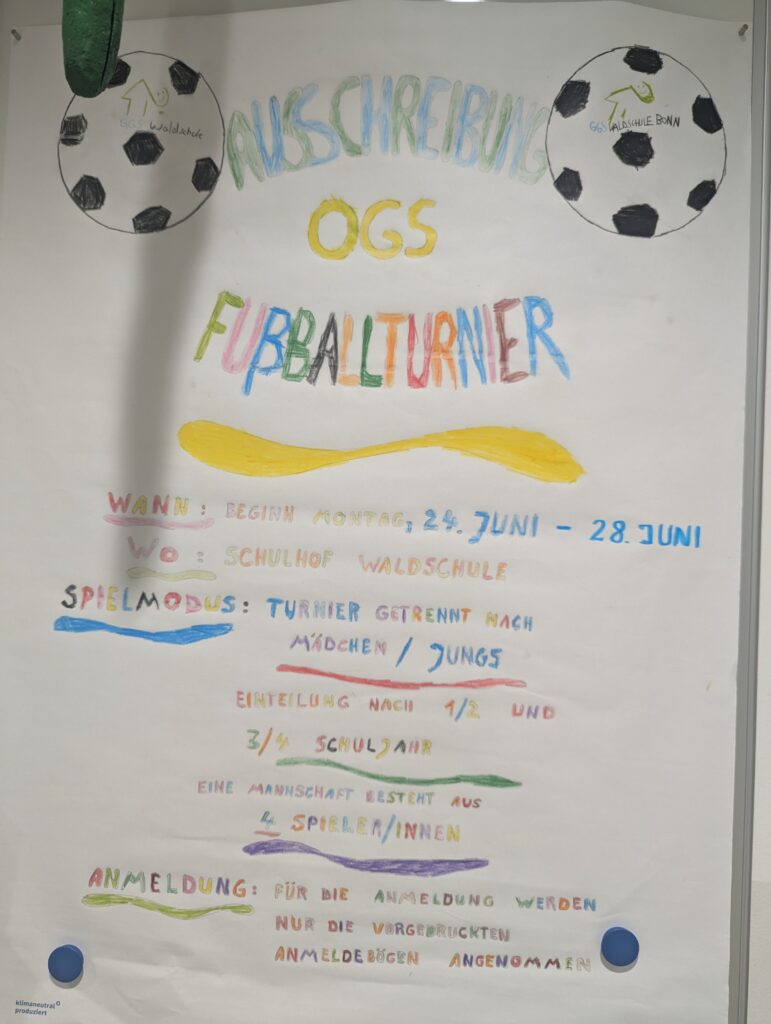 GGS Waldschule
GGS WALDSCHULE BONN
AUSSCHREIBUNG
OGS
FUßBALLTURNIER
WANN: BEGINN MONTAG, 24. JUNI – 28. JUNI
WO: SCHULHOF WALDSCHULE
SPIELMODUS: TURNIER GETRENNT NACH
MÄDCHEN / JUNGS
EINTEILUNG NACH 1/2 UND
3/4 SCHULJAHR
EINE MANNSCHAFT BESTEHT AUS
4 SPIELER/INNEN
ANMELDUNG: FÜR DIE ANMELDUNG WERDEN
NUR DIE VORGEDRUCKTEN
ANMELDEBÖGEN ANGENOMMEN
klimaneutral
produziert